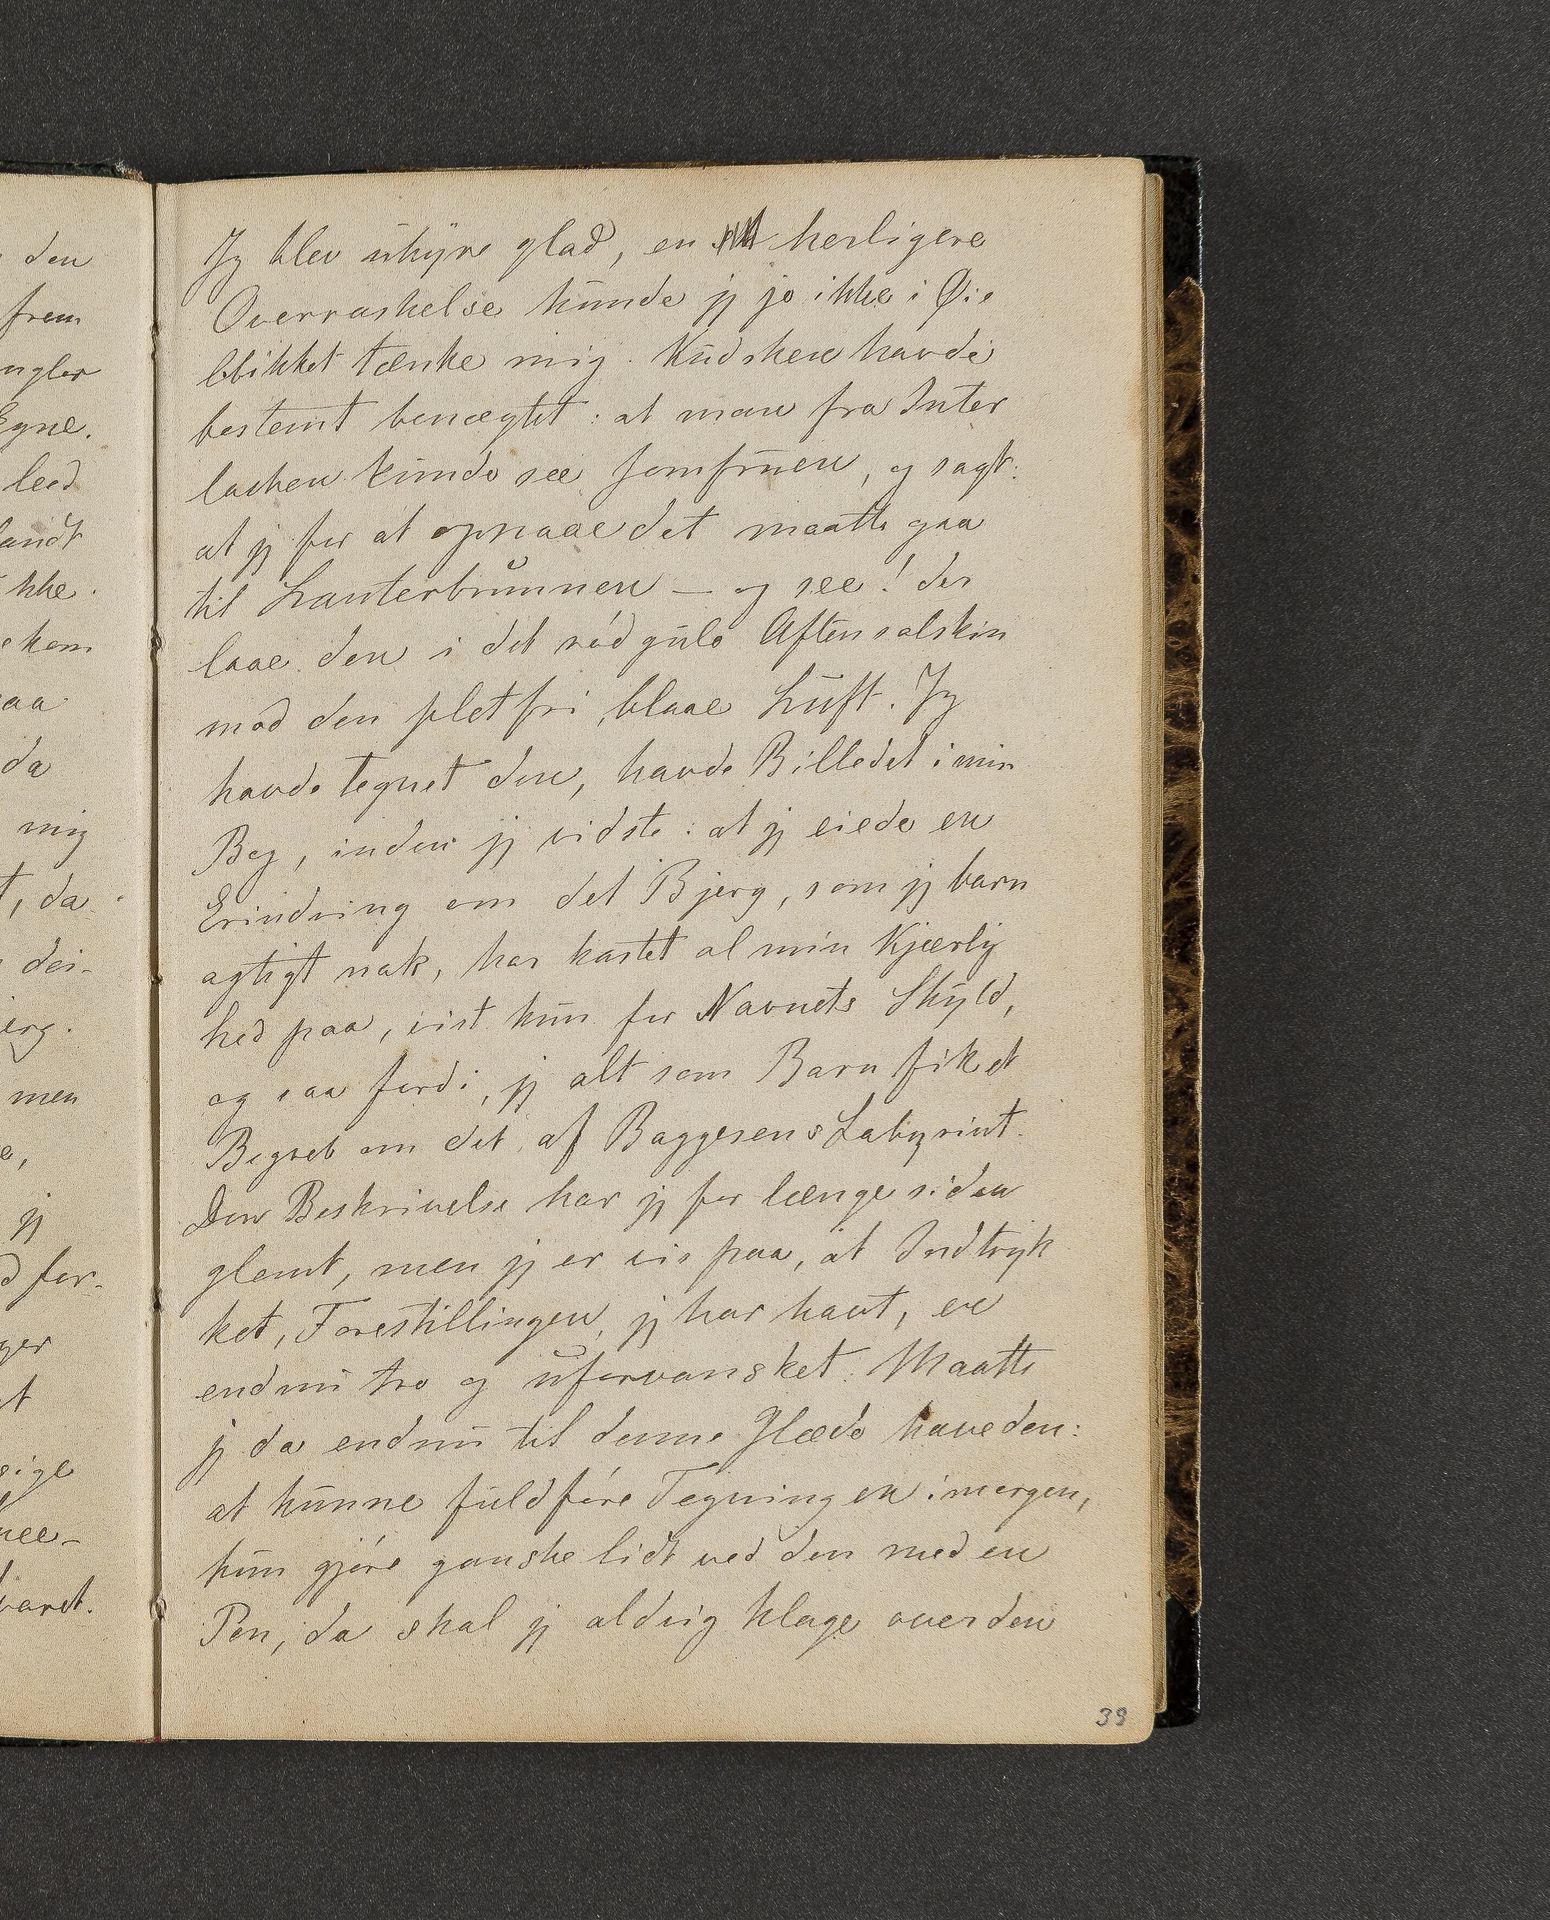 den
frem
ngler
Egne.
leed
landt
kke.
kom
aa
da
mig
t, da
dei-
jerg.
men
e,
jg
d for-
ger
et
sige
nee-
varet.
Jg blev uhyre glad, en herligere
Overraskelse kunde jg jo ikke i Øie
blikket tænke mig. Kudsken havde
bestemt benægtet: at man fra Inter
lacken kunde see Jomfruen, og sagt:
at jg for at opnaae det maatte gaa
til Lauterbrunnen – og see! der
laae den i det rødgule Aftensolskin
mod den pletfri, blaae Luft. Jg
havde tegnet den, havde Billedet i min
Bog, inden jg vidste: at jg eiede en
Erindring om det Bjerg, som jg barn
agtigt nok, har kastet al min Kjærlig
hed paa, vist kun for Navnets Skyld,
og saa fordi, jg alt som Barn fik et
Begreb om det, af Baggesens Labyrint.
Den Beskrivelse har jg for længe siden
glemt, men jg er vis paa, at Indtryk
ket, Forestillingen, jg har havt, er
endnu tro og uforvansket. Maatte
jg da endnu til denne Glæde have den:
at kunne fuldføre Tegningen imorgen,
kun gjøre ganske lidt ved den med en
Pen, da skal jg aldrig klage over den
39